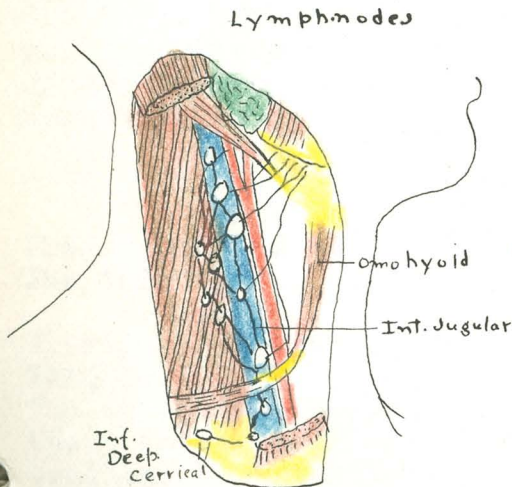 Lymphnodes
Omohyoid
Int. Jugular
Inf.
Deep
Cervical